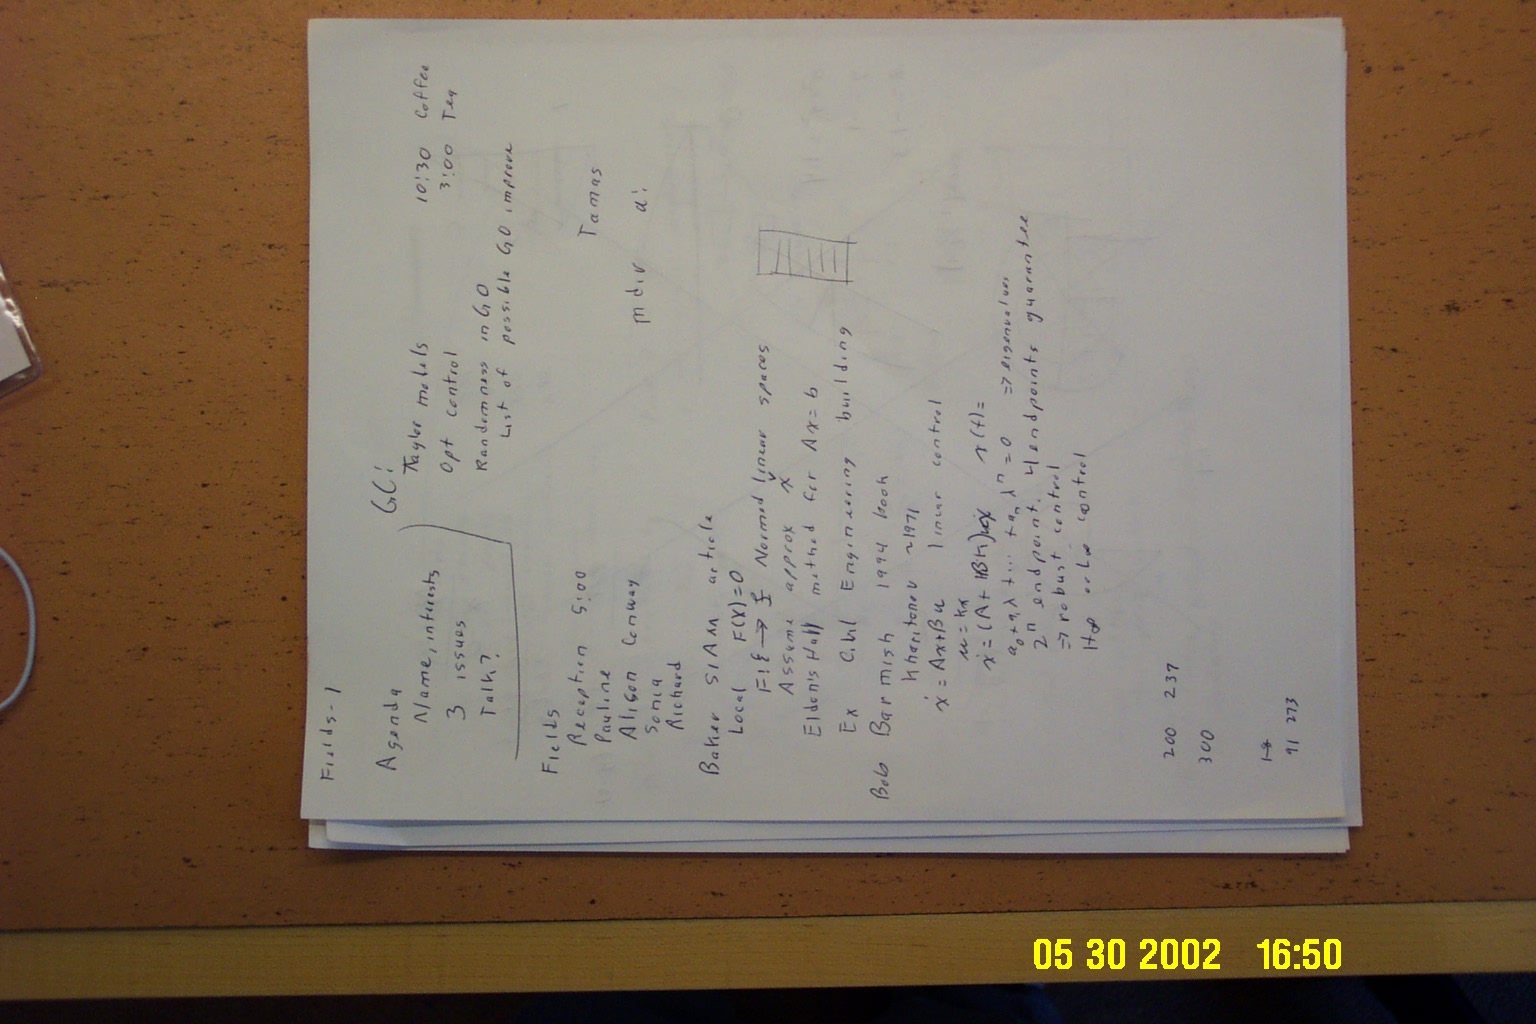 Fields-1
Agenda
Name, interests
3 issues
Talk?
GC:
Taylor models
Opt control
Randomness in GO
List of possible GO improve
10:30 Coffee
3:00 Tea
Fields
Reception 5:00
Pauline
Alison Conway
Sonia
Richard
Tamas
mdir a:
Baker SIAM article
Local F(X)=0
Normed linear spaces
Assume approx x
Eldon's Hall method for Ax=b
Ex Civil Engineering building
Bob Barmish 1994 book
Kharitonov ~1971
ẋ = Ax+Bu linear control
u = kx
ẋ = (A + BK)x x(t)=
a₀+a₁λ+... +aₙλⁿ = 0 ⇒ eigenvalues
2ⁿ endpoint. 4 endpoints guarantee
⇒ robust control
H∞ or L∞ control
200 237
300
91 273
05 30 2002 16:50